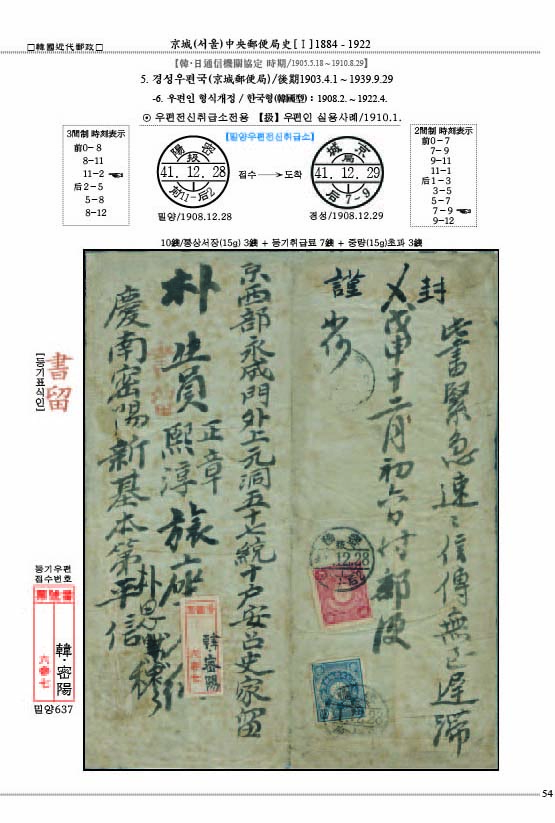 □韓國近代郵政□
京城(서울)中央郵便局史[Ⅰ]1884 - 1922
【韓·日通信機關協定 時期/1905.5.18~1910.8.29】
5. 경성우편국(京城郵便局)/後期1903.4.1 ~ 1939.9.29
-6. 우편인 형식개정 / 한국형(韓國型) : 1908.2. ~ 1922.4.
⊙ 우편전신취급소전용 【扱】 우편인 실용사례/1910.1.
3間制 時刻表示
前0 - 8
8 - 11
11 - 2
后2 - 5
5 - 8
8 - 12
[밀양우편전신취급소]
密陽
扱
41. 12. 28
前11-后2
밀양/1908.12.28
접수 → 도착
京城
局
41. 12. 29
后7-9
경성/1908.12.29
2間制 時刻表示
前0 - 7
7 - 9
9 - 11
11 - 1
后1 - 3
3 - 5
5 - 7
7 - 9
9 - 12
10錢/통상서장(15g) 3錢 + 등기취급료 7錢 + 중량(15g)초과 3錢
封
此書緊急速々信傳無至遲滯
戊申十二月初六日付郵便
謹
京西部永成門外上元洞五十七統十戶安召史家留
朴
正章
熙淳
慶南密陽新基本第平信
12.28
書留
[등기표식인]
등기우편
접수번호
韓·密陽
六三七
밀양637
韓密陽
六三七
54